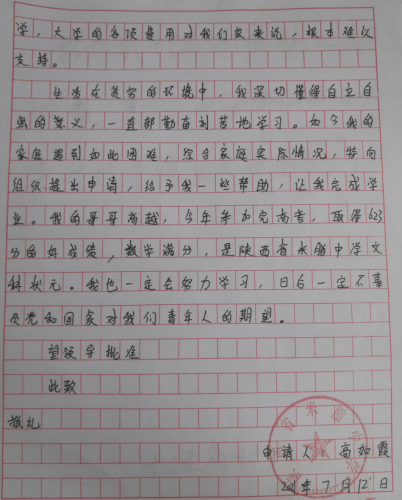 学，大学的各项费用对我们家来说，根本难以
支持。
生活在贫穷的环境中，我深切懂得自立自
强的意义，一直都勤奋刻苦地学习。如今我的
家庭遇到如此困难，综合家庭实际情况，特向
组织提出申请，给予我一些帮助，让我完成学
业。我的哥哥高越，今年参加完高考，取得623
分的好成绩，数学满分，是陕西省米脂中学文
科状元。我也一定会努力学习，日后一定不辜
负党和国家对我们青年人的期望。
望领导批准
此致
敬礼
申请人：高如霞
2021年7月12日